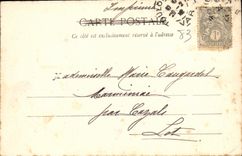 Imprimé
CARTE POSTALE
Ce côté est exclusivement réservé à l'adresse
83
1
Mademoiselle Marie
Marminiac
par Cazals
Lot